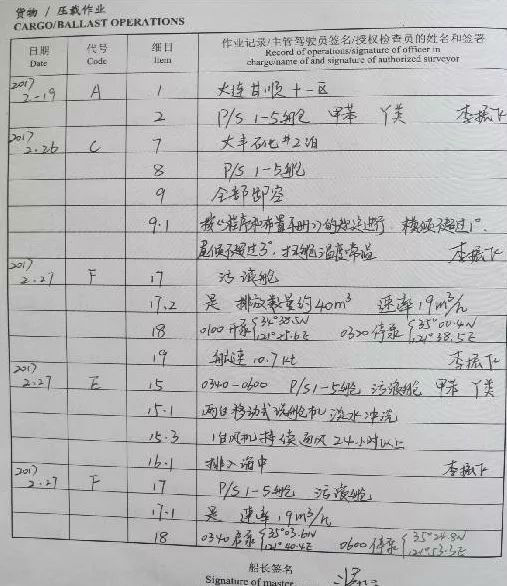 货物 / 压载作业
CARGO/BALLAST OPERATIONS
日期 代号 细目 作业记录/主管驾驶员签名/授权检查员的姓名和签署
Date Code Item Record of operations/signature of officer in
charge/name of and signature of authorized surveyor
2017
2-19 A 1 大连甘顺十一区
2 P/S 1-5舱 甲苯 丫类 李振飞
2017
2.26 C 7 大丰石化#2泊
8 P/S 1-5舱
9 全部卸空
9.1 按《程序和布置手册》的规定进行 横倾不超过1°.
尾倾不超过3°, 扫舱温度常温 李振飞
2017
2-27 F 17 污液舱
17.2 是 排放数量约40m³ 速率19m³/h
18 0100开泵 34°38.5N 0320停泵 35°00.4N
121°25.6E 121°38.5E
19 船速10.7kt 李振飞
2017
2.27 E 15 0340-0600 P/S1-5舱 污液舱 甲苯 丫类
15.1 两台移动式洗舱机 淡水冲洗
15.3 1台风机持续通风24小时以上
16.1 排入海中 李振飞
2017
2.27 F 17 P/S1-5舱 污液舱
17.1 是 速率19m³/h
18 0340启泵 35°03.6N 0600停泵 35°24.8N
121°40.4E 121°53.3E
船长签名
Signature of master